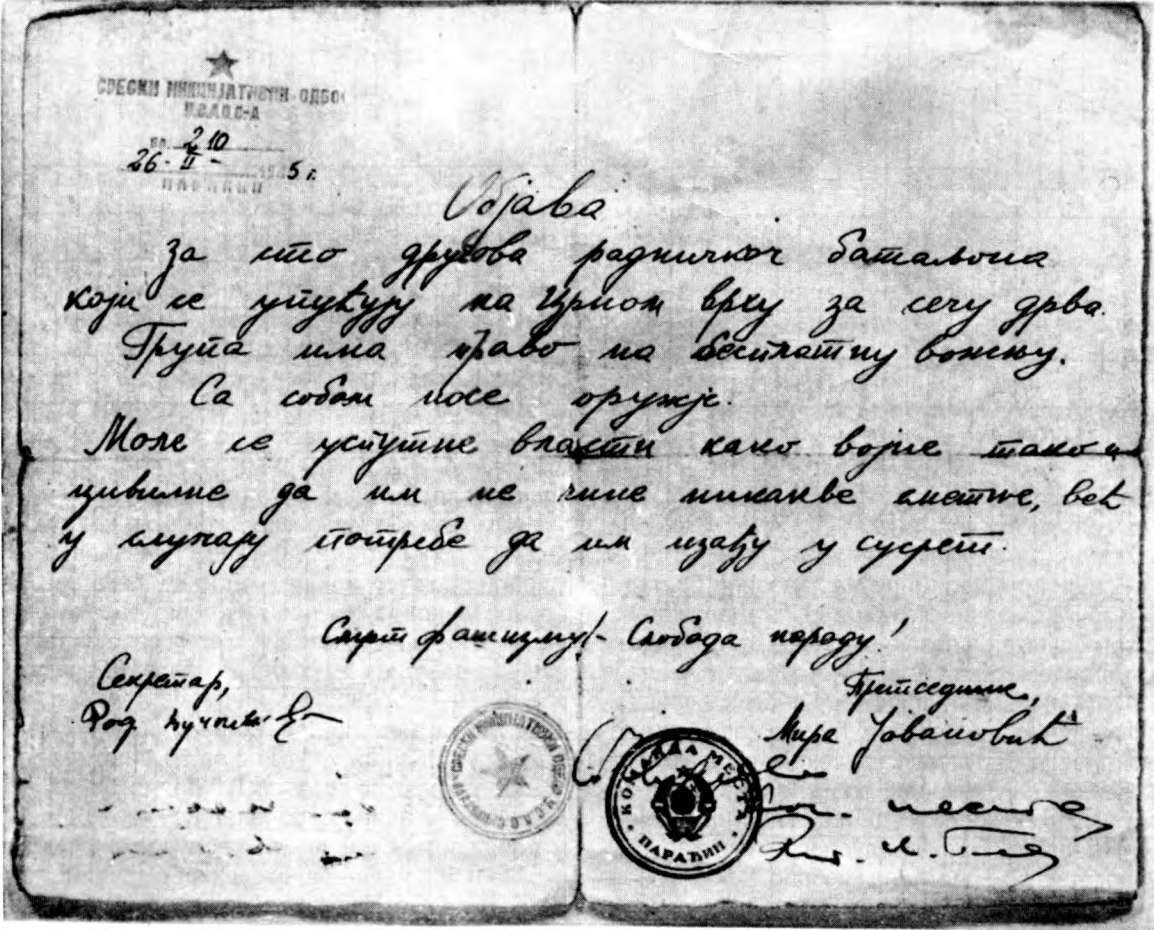 СРЕСКИ ИНИЦИЈАТИВНИ ОДБО
У.С.А.О.С-А
БР. 210
26-II- 1945 г.
ПАРАЋИН
Објава
за сто другова радничког батаљона
који се упућују на Црном врху за сечу дрва.
Група има право на бесплатну вожњу.
Са собом носе оружје.
Моле се успутне власти како војне тако и
цивилне да им не чине никакве сметње, већ
у случају потребе да им изађу у сусрет.
Смрт фашизму! - Слобода народу!
Секретар,
Претседник,
Рад.
Мира Јовановић
СРЕСКИ ИНИЦИЈАТИВНИ ОДБОР
КОМАНДА МЕСТА
ПАРАЋИН